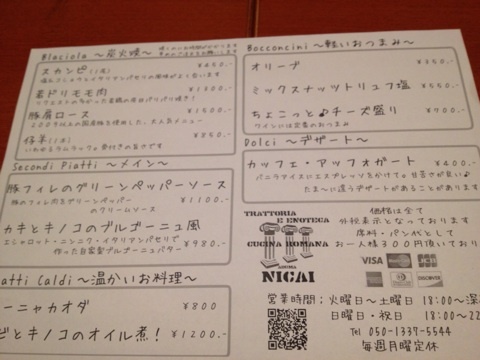 Blaciola ～炭火焼～
スカンピ(1尾) ¥450.-
塩とコショウとイタリアンパセリの風味がよく合います
若ドリモモ肉 ¥1300.-
豚肩ロース ¥1500.-
仔羊(1本) ¥850.-
いわゆるラムラック。骨付きの旨さです
Secondi Piatti ～メイン～
豚フィレのグリーンペッパーソース
豚のフィレ肉をグリーンペッパー
のクリームソース ¥1100.-
カキとキノコのブルゴーニュ風
エシャロット・ニンニク・イタリアンパセリで
作った自家製ブルゴーニュバター ¥980.-
iatti Caldi ～温かいお料理～
ーニャカオダ ¥800
ビとキノコのオイル煮! ¥1200.-
Bocconcini ～軽いおつまみ～
オリーブ ¥350.-
ミックスナッツトリュフ塩 ¥550.-
ちょこっと♪チーズ盛り ¥700.-
ワインには定番のおつまみ
Dolci ～デザート～
カッフェ・アッフォガート ¥400.-
バニラアイスにエスプレッソをかけて。甘苦さが良い♪
たま～に違うデザートがあることがあります
TRATTORIA
E ENOTECA
CUCINA ROMANA
NICAI
価格は全て
外税表示となっております
席料・パン代として
お一人様300円頂いており
VISA
DISCOVER
営業時間:火曜日～土曜日 18:00～深
日曜日・祝日 18:00～22
Tel 050-1337-5544
毎週月曜定休